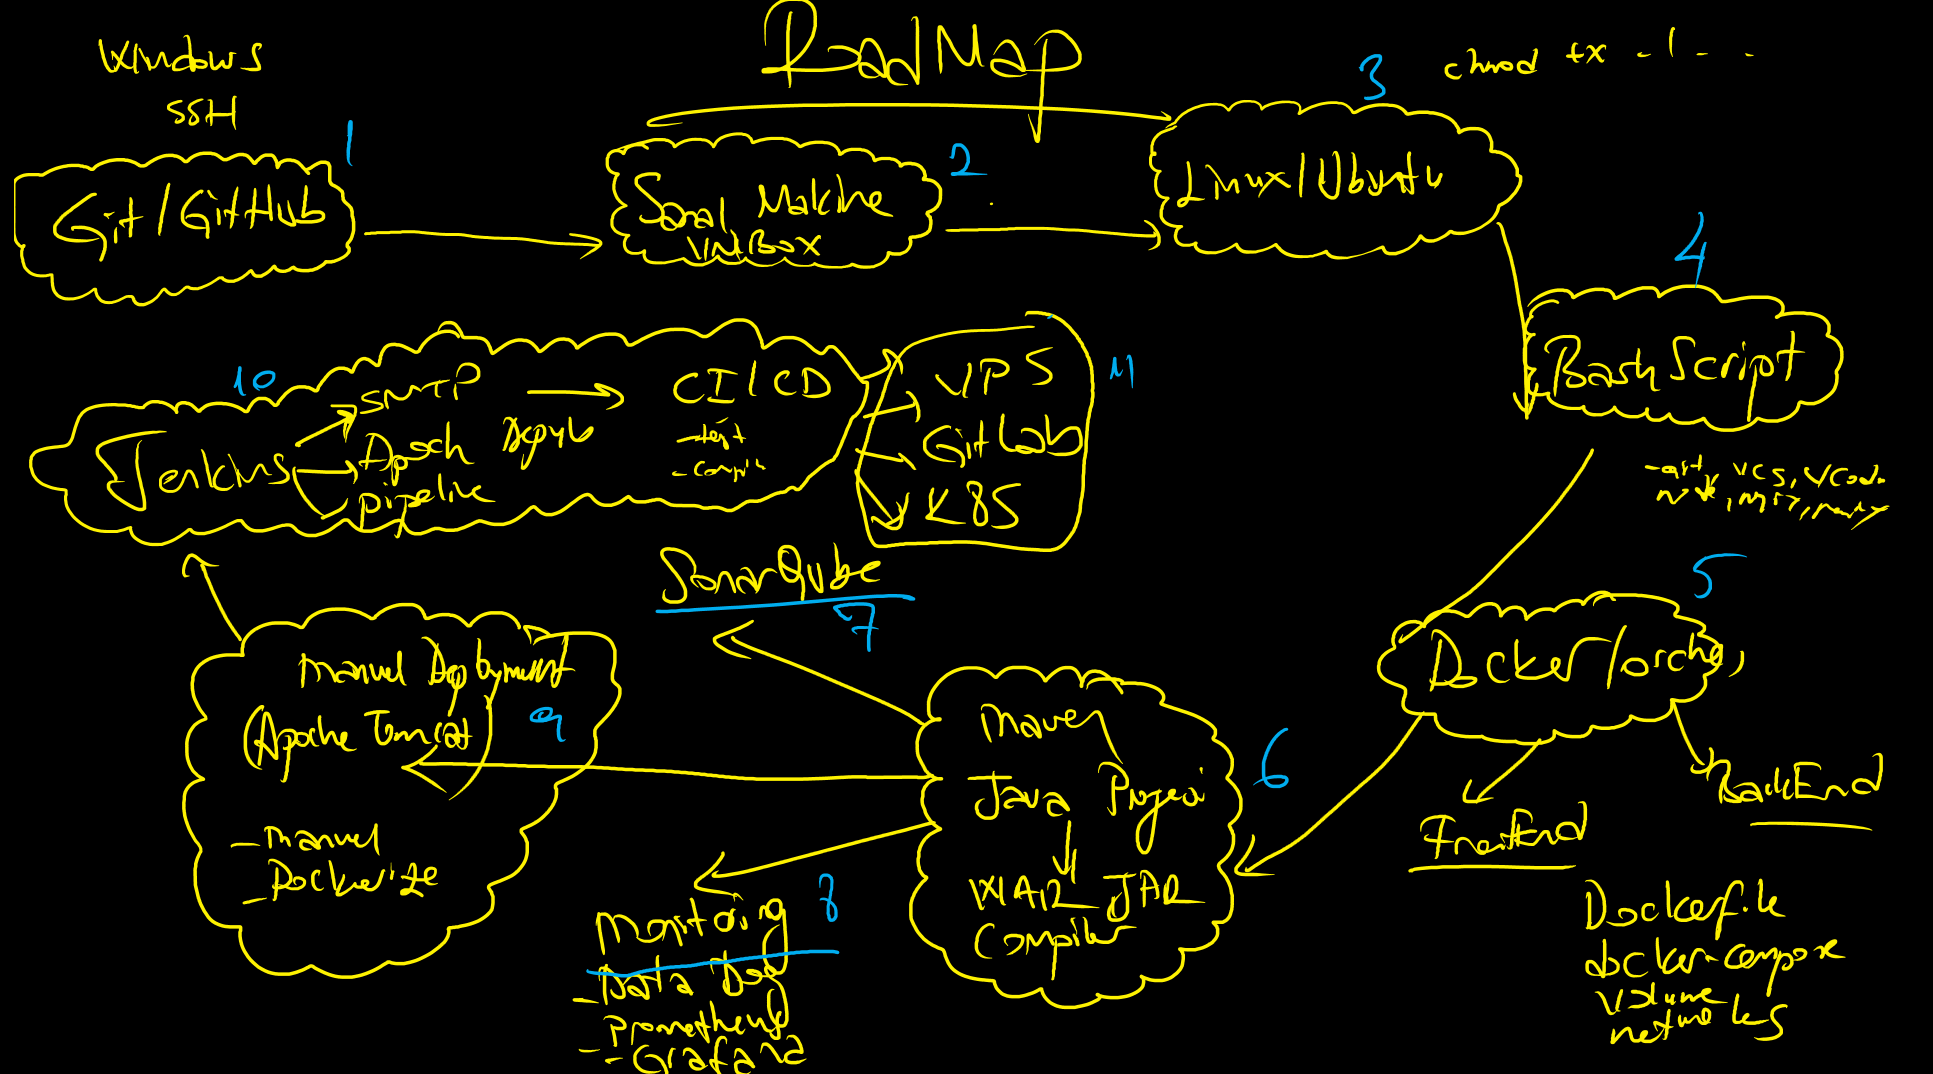 RoadMap
Windows
SSH
1
Git/GitHub
2
Sanal Makine
VirtBox
3
chmod +x ./...
Linux/Ubuntu
4
BashScript
5
Docker/orche
BackEnd
FrontEnd
Dockerfile
docker-compose
volume
networks
6
Maven
Java Project
WAR JAR
Compiler
SonarQube
7
Monitoring 8
- Data Dog
- Prometheus
-- Grafana
Manuel Deployment
(Apache Tomcat) 9
- manuel
- Dockerize
10
Jenkins
SMTP
Apach
pipeline
CI/CD
- test
11
VPS
GitLab
K8S